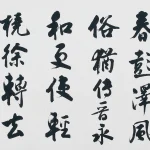 春彭澤風
俗猶傳晉永
和更使輕
橈徐轉去